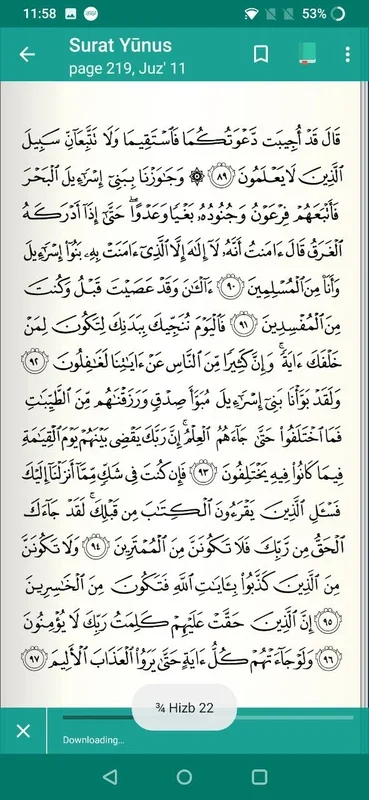 11:58
53%
Surat Yūnus
page 219, Juz' 11
قَالَ قَدْ أُجِيبَت دَّعْوَتُكُمَا فَٱسْتَقِيمَا وَلَا تَتَّبِعَآنِّ سَبِيلَ
ٱلَّذِينَ لَا يَعْلَمُونَ ٨٩ ۞ وَجَٰوَزْنَا بِبَنِىٓ إِسْرَٰٓءِيلَ ٱلْبَحْرَ
فَأَتْبَعَهُمْ فِرْعَوْنُ وَجُنُودُهُۥ بَغْيًا وَعَدْوًا ۖ حَتَّىٰٓ إِذَآ أَدْرَكَهُ
ٱلْغَرَقُ قَالَ ءَامَنتُ أَنَّهُۥ لَآ إِلَٰهَ إِلَّا ٱلَّذِىٓ ءَامَنَتْ بِهِۦ بَنُوٓا۟ إِسْرَٰٓءِيلَ
وَأَنَا۠ مِنَ ٱلْمُسْلِمِينَ ٩٠ ءَآلْـَٰٔنَ وَقَدْ عَصَيْتَ قَبْلُ وَكُنتَ
مِنَ ٱلْمُفْسِدِينَ ٩١ فَٱلْيَوْمَ نُنَجِّيكَ بِبَدَنِكَ لِتَكُونَ لِمَنْ
خَلْفَكَ ءَايَةً ۚ وَإِنَّ كَثِيرًا مِّنَ ٱلنَّاسِ عَنْ ءَايَٰتِنَا لَغَٰفِلُونَ ٩٢
وَلَقَدْ بَوَّأْنَا بَنِىٓ إِسْرَٰٓءِيلَ مُبَوَّأَ صِدْقٍ وَرَزَقْنَٰهُم مِّنَ ٱلطَّيِّبَٰتِ
فَمَا ٱخْتَلَفُوا۟ حَتَّىٰ جَآءَهُمُ ٱلْعِلْمُ ۚ إِنَّ رَبَّكَ يَقْضِى بَيْنَهُمْ يَوْمَ ٱلْقِيَٰمَةِ
فِيمَا كَانُوا۟ فِيهِ يَخْتَلِفُونَ ٩٣ فَإِن كُنتَ فِى شَكٍّ مِّمَّآ أَنزَلْنَآ إِلَيْكَ
فَسْـَٔلِ ٱلَّذِينَ يَقْرَءُونَ ٱلْكِتَٰبَ مِن قَبْلِكَ ۚ لَقَدْ جَآءَكَ
ٱلْحَقُّ مِن رَّبِّكَ فَلَا تَكُونَنَّ مِنَ ٱلْمُمْتَرِينَ ٩٤ وَلَا تَكُونَنَّ
مِنَ ٱلَّذِينَ كَذَّبُوا۟ بِـَٔايَٰتِ ٱللَّهِ فَتَكُونَ مِنَ ٱلْخَٰسِرِينَ
٩٥ إِنَّ ٱلَّذِينَ حَقَّتْ عَلَيْهِمْ كَلِمَتُ رَبِّكَ لَا يُؤْمِنُونَ
٩٦ وَلَوْ جَآءَتْهُمْ كُلُّ ءَايَةٍ حَتَّىٰ يَرَوُا۟ ٱلْعَذَابَ ٱلْأَلِيمَ ٩٧
¾ Hizb 22
Downloading...